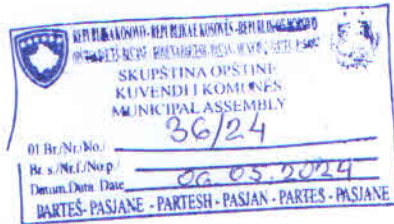 REPUBLIKA KOSOVO - REPUBLIKA E KOSOVËS - REPUBLIC OF KOSOVO
SKUPŠTINA OPŠTINE
KUVENDI I KOMUNËS
MUNICIPAL ASSEMBLY
36/24
01 Br/Nr/No./
Br. s/Nr.f./No p./
Datum.Data Date 06 03. 2024
PARTEŠ- PASJANE - PARTESH - PASJAN - PARTES - PASJANE